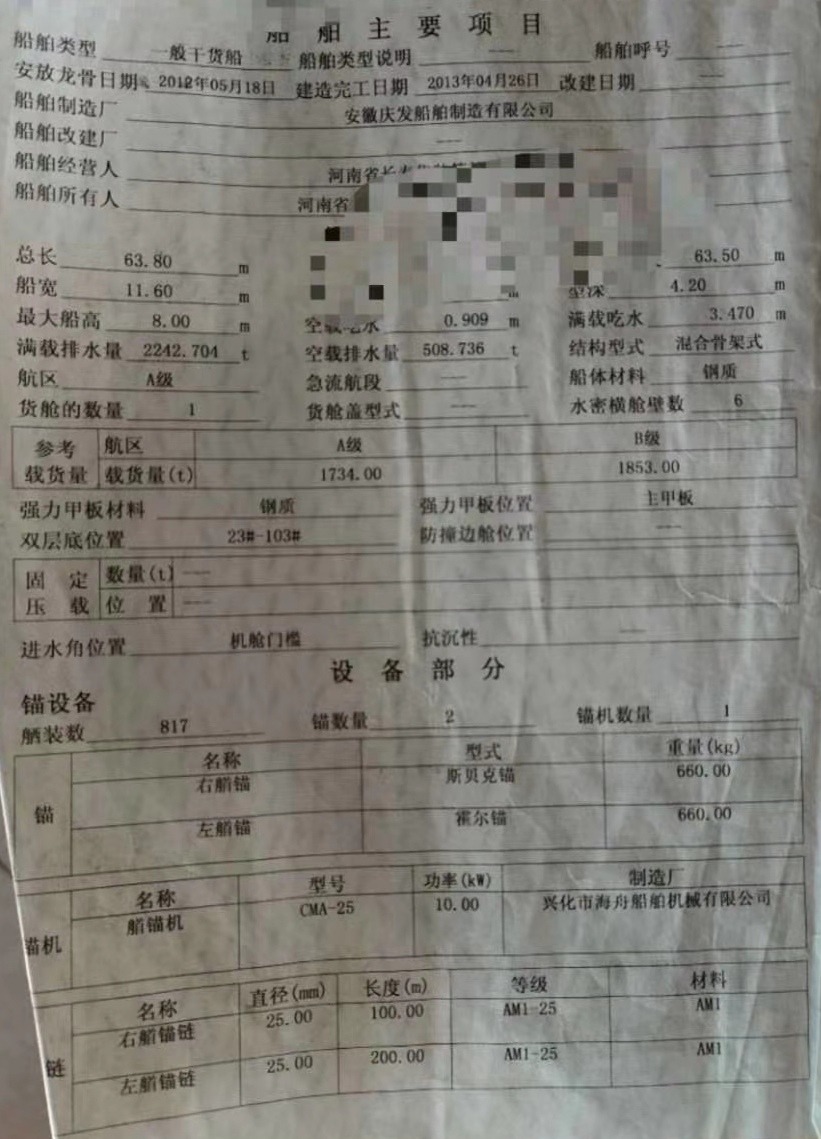 船舶主要项目
船舶类型 一般干货船 船舶类型说明 —— 船舶呼号 ——
安放龙骨日期 2012年05月18日 建造完工日期 2013年04月26日 改建日期 ——
船舶制造厂 安徽庆发船舶制造有限公司
船舶改建厂 ——
船舶经营人 河南省长
船舶所有人 河南省
总长 63.80 m 63.50 m
船宽 11.60 m m 型深 4.20 m
最大船高 8.00 m 空载吃水 0.909 m 满载吃水 3.470 m
满载排水量 2242.704 t 空载排水量 508.736 t 结构型式 混合骨架式
航区 A级 急流航段 —— 船体材料 钢质
货舱的数量 1 货舱盖型式 —— 水密横舱壁数 6
参考 航区 A级 B级
载货量 载货量(t) 1734.00 1853.00
强力甲板材料 钢质 强力甲板位置 主甲板
双层底位置 23#-103# 防撞边舱位置 ——
固定 数量(t) ——
压载 位置 ——
进水角位置 机舱门槛 抗沉性 ——
设备部分
锚设备
舾装数 817 锚数量 2 锚机数量 1
锚 名称 型式 重量(kg)
右艏锚 斯贝克锚 660.00
左艏锚 霍尔锚 660.00
锚机 名称 型号 功率(kW) 制造厂
艏锚机 CMA-25 10.00 兴化市海舟船舶机械有限公司
链 名称 直径(mm) 长度(m) 等级 材料
右艏锚链 25.00 100.00 AM1-25 AM1
左艏锚链 25.00 200.00 AM1-25 AM1